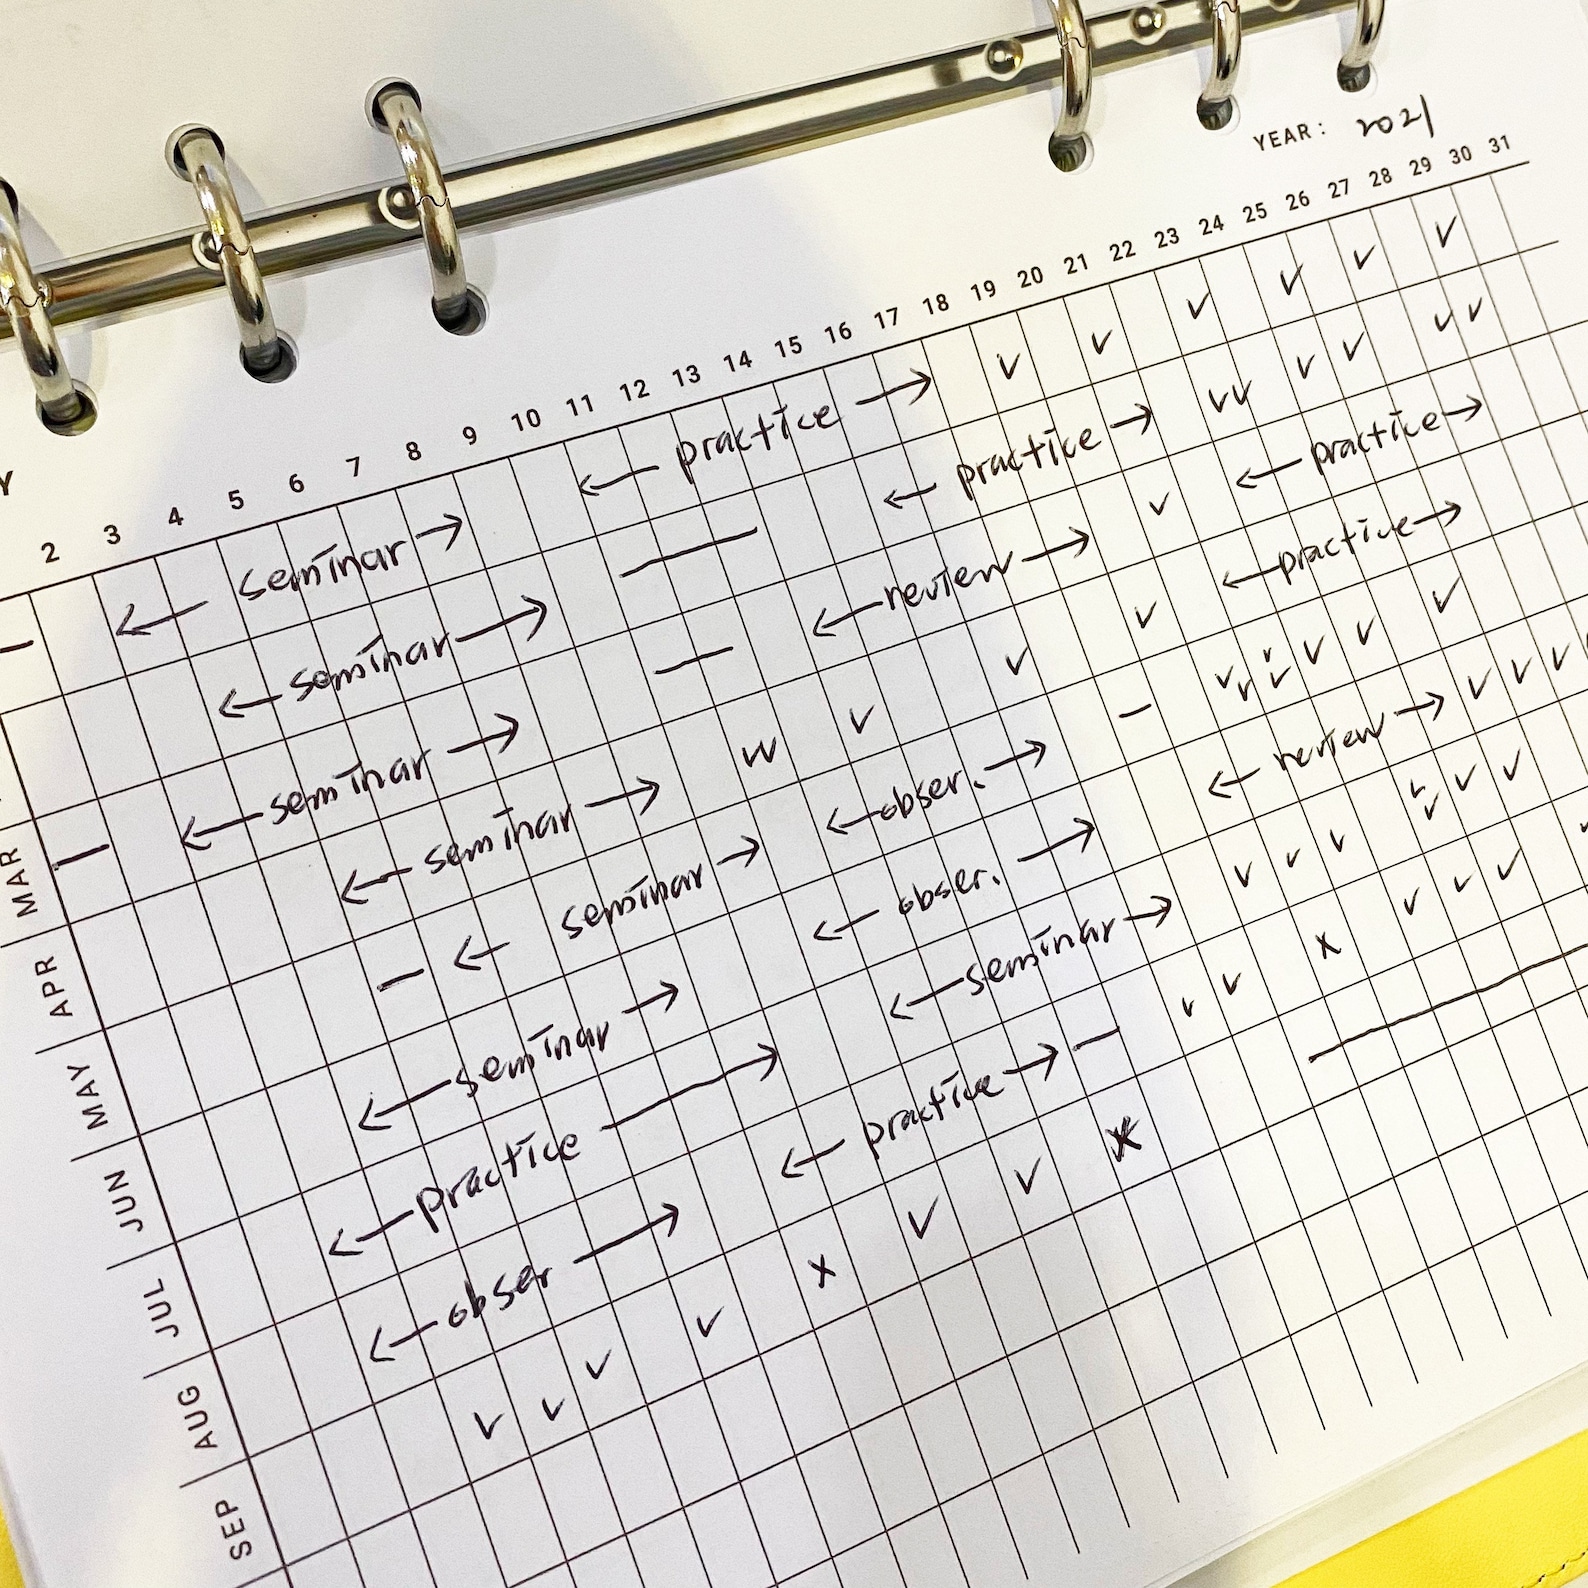 YEAR: 2021
Y 2 3 4 5 6 7 8 9 10 11 12 13 14 15 16 17 18 19 20 21 22 23 24 25 26 27 28 29 30 31
— ← seminar → ← practice → ✓ ✓ ✓ ✓ ✓ ✓
← seminar → — ← practice → ✓✓ ✓ ✓ ✓✓
MAR — ← seminar → — ← review → ✓ ← practice →
APR ← seminar → w ✓ ✓ ✓ ← practice →
MAY — ← seminar → ← obser. → — ✓✓ ✓✓ ✓ ✓ ✓
JUN ← seminar → ← obser. → ← review → ✓ ✓ ✓
JUL ← practice → ← seminar → ✓ ✓ ✓ ✓✓ ✓ ✓
AUG ← obser → ← practice → — ✓ ✓ x ✓ ✓ ✓
SEP ✓ ✓ ✓ ✓ x ✓ ✓ x —